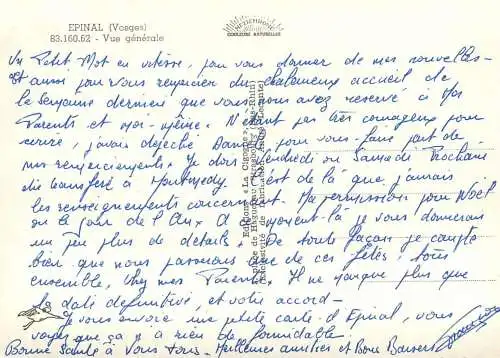 EPINAL (Vosges)
83.160.62 - Vue générale
COULEURS NATURELLES
Un Petit Mot en vitesse, pour vous donner de mes nouvelles -
Et aussi pour vous remercier du chaleureux accueil de
la semaine dernière que vous nous avez reservé à mes
Parents et moi-même. N'étant pas très courageux pour
écrire, j'avais dépéché Dany pour vous faire part de
mes remerciements. Je dois Vendredi ou Samedi Prochain
être transféré à Montmedy. C'est de là que j'aurais
les renseignements concernant Ma permission pour Noël
ou le Jour de l'An. A ce moment-là je vous donnerais
un peu plus de détails. De toute façon je compte
bien que nous passerons une de ces fêtes, tous
ensemble, chez mes Parents. Il ne manque plus que
la date définitive, et votre accord -
Je vous envoie une petite carte d'Epinal, vous
voyez que ça a rien de formidable.
Bonne Santé à Vous Tous - Meilleures amitiés et Bons Baisers
Editions « La Cigogne »
place de Haguenau, Strasbourg (Bas-Rhin)